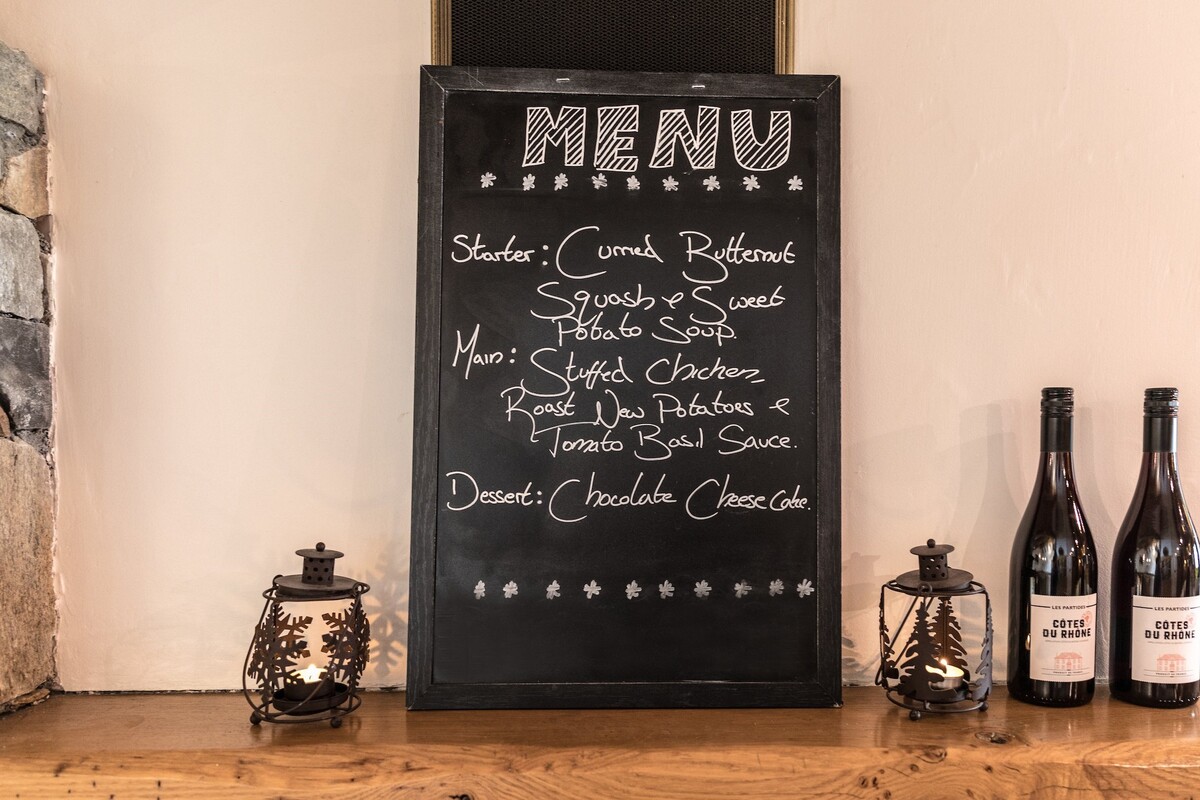 MENU
Starter: Curried Butternut
Squash & Sweet
Potato Soup.
Main:
Stuffed Chicken,
Roast New Potatoes &
Tomato Basil Sauce.
Dessert: Chocolate Cheese Cake.
LES PARTIDES
CÔTES
DU RHÔNE
LES PARTIDES
CÔTES
DU RHÔNE